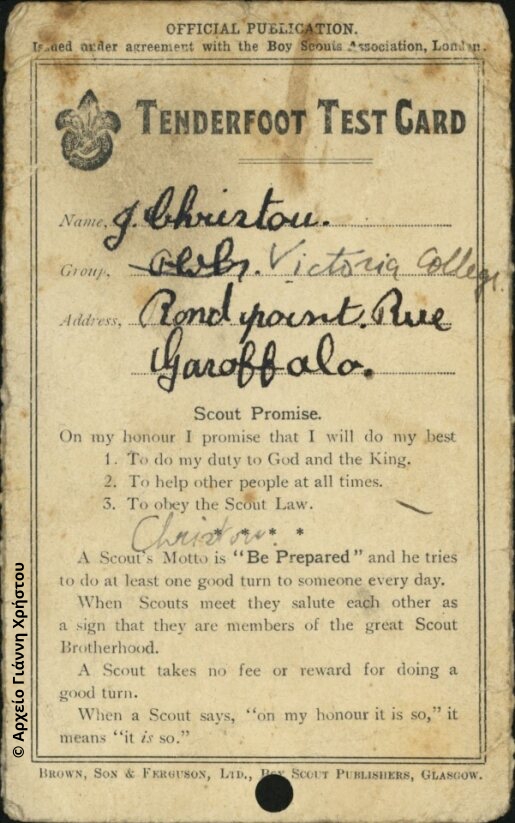 OFFICIAL PUBLICATION.
Issued under agreement with the Boy Scouts Association, London.
TENDERFOOT TEST CARD
Name, J. Christou.
Group, Victoria College.
Address, Rond point. Rue
Garoffalo.
Scout Promise.
On my honour I promise that I will do my best
1. To do my duty to God and the King.
2. To help other people at all times.
3. To obey the Scout Law.
Christou * * *
A Scout's Motto is "Be Prepared" and he tries
to do at least one good turn to someone every day.
When Scouts meet they salute each other as
a sign that they are members of the great Scout
Brotherhood.
A Scout takes no fee or reward for doing a
good turn.
When a Scout says, "on my honour it is so," it
means "it is so."
BROWN, SON & FERGUSON, LTD., BOY SCOUT PUBLISHERS, GLASGOW.
© Αρχείο Γιάννη Χρήστου